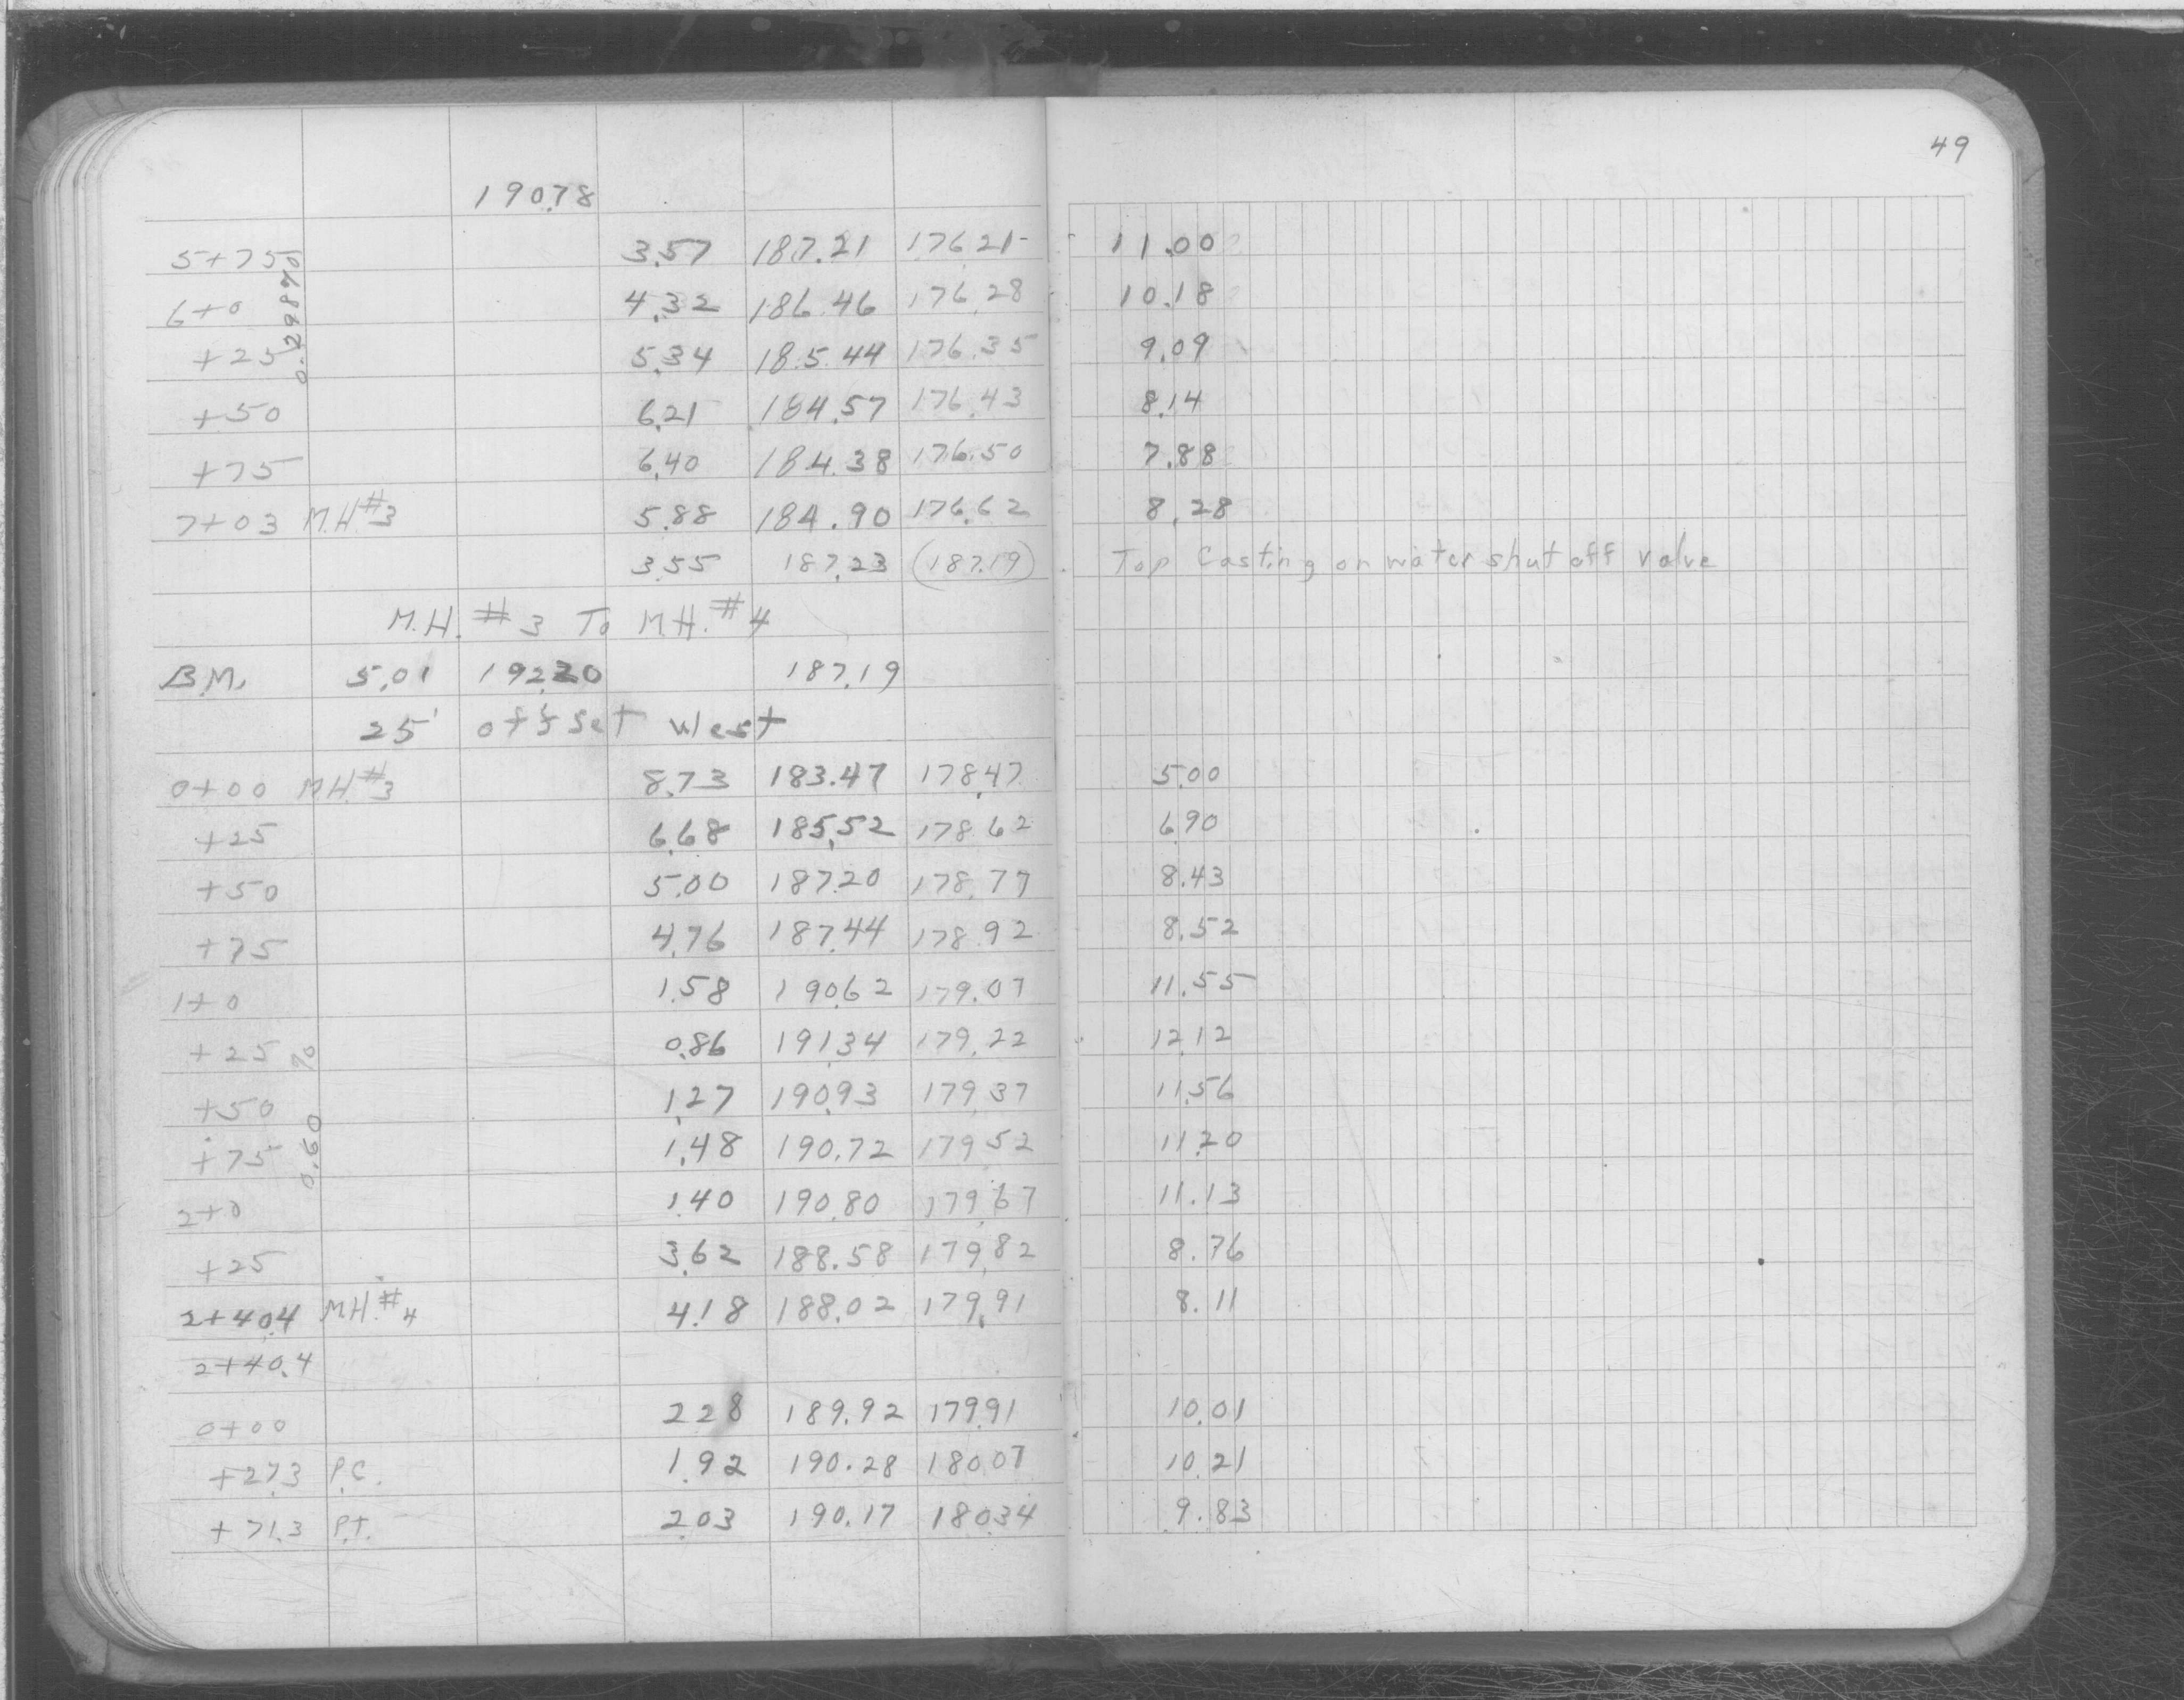 49
190.78
5+75 3.57 187.21 176.21 11.00
6+0 4.32 186.46 176.28 10.18
+25 5.34 185.44 176.35 9.09
+50 6.21 184.57 176.43 8.14
+75 6.40 184.38 176.50 7.88
7+03 M.H.#3 5.88 184.90 176.62 8.28
0.298%
3.55 187.23 (187.19) Top Casting on water shut off valve
M.H. #3 To M.H. #4
B.M. 5.01 192.20 187.19
25' offset West
0+00 M.H.#3 8.73 183.47 178.47 5.00
+25 6.68 185.52 178.62 6.90
+50 5.00 187.20 178.77 8.43
+75 4.76 187.44 178.92 8.52
1+0 1.58 190.62 179.07 11.55
+25 0.86 191.34 179.22 12.12
+50 1.27 190.93 179.37 11.56
+75 1.48 190.72 179.52 11.20
0.60 %
2+0 1.40 190.80 179.67 11.13
+25 3.62 188.58 179.82 8.76
2+40.4 M.H.#4 4.18 188.02 179.91 8.11
2+40.4
0+00 2.28 189.92 179.91 10.01
+27.3 P.C. 1.92 190.28 180.07 10.21
+71.3 P.T. 2.03 190.17 180.34 9.83